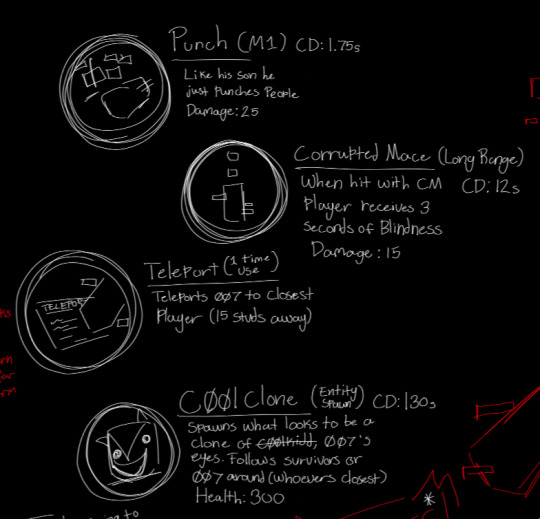 Punch (M1) CD: 1.75s
Like his son he
just punches People
Damage: 25
Corrupted Mace (Long Range)
When hit with CM CD: 12s
Player receives 3
seconds of Blindness
Damage: 15
Teleport (1 time use)
Teleports 007 to closest
Player (15 studs away)
TELEPOR
C00lClone (Entity Spawn) CD: 130s
Spawns what looks to be a
clone of c00lkidd, 007's
eyes. Follows survivors or
007 around (whoevers closest)
Health: 300